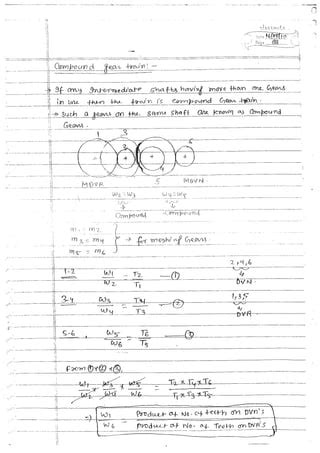 Compound gear train:-
→ If any Intermediate shafts having more than one Gears
in use then the train is compound Gear train.
→ Such a gears on the same shaft are known as Compound
Gears.
1 3 6
2
4
MDVR 5 MDVN
W2 = W3 W4 = W5
Compound Compound
m1 = m2
m3 = m4 → for meshing Gears
m5 = m6
2,4,6
DVN
1-2 W1/W2 = T2/T1 —①
1,3,5
DVR
3-4 W3/W4 = T4/T3 —②
5-6 W5/W6 = T6/T5 —③
From ① × ② × ③
W1/W2 × W3/W4 × W5/W6 = T2 × T4 × T6 / T1 × T3 × T5
⇒ W1/W6 = Product of No. of teeth on DVN's / product of No. of Teeth on DVR's